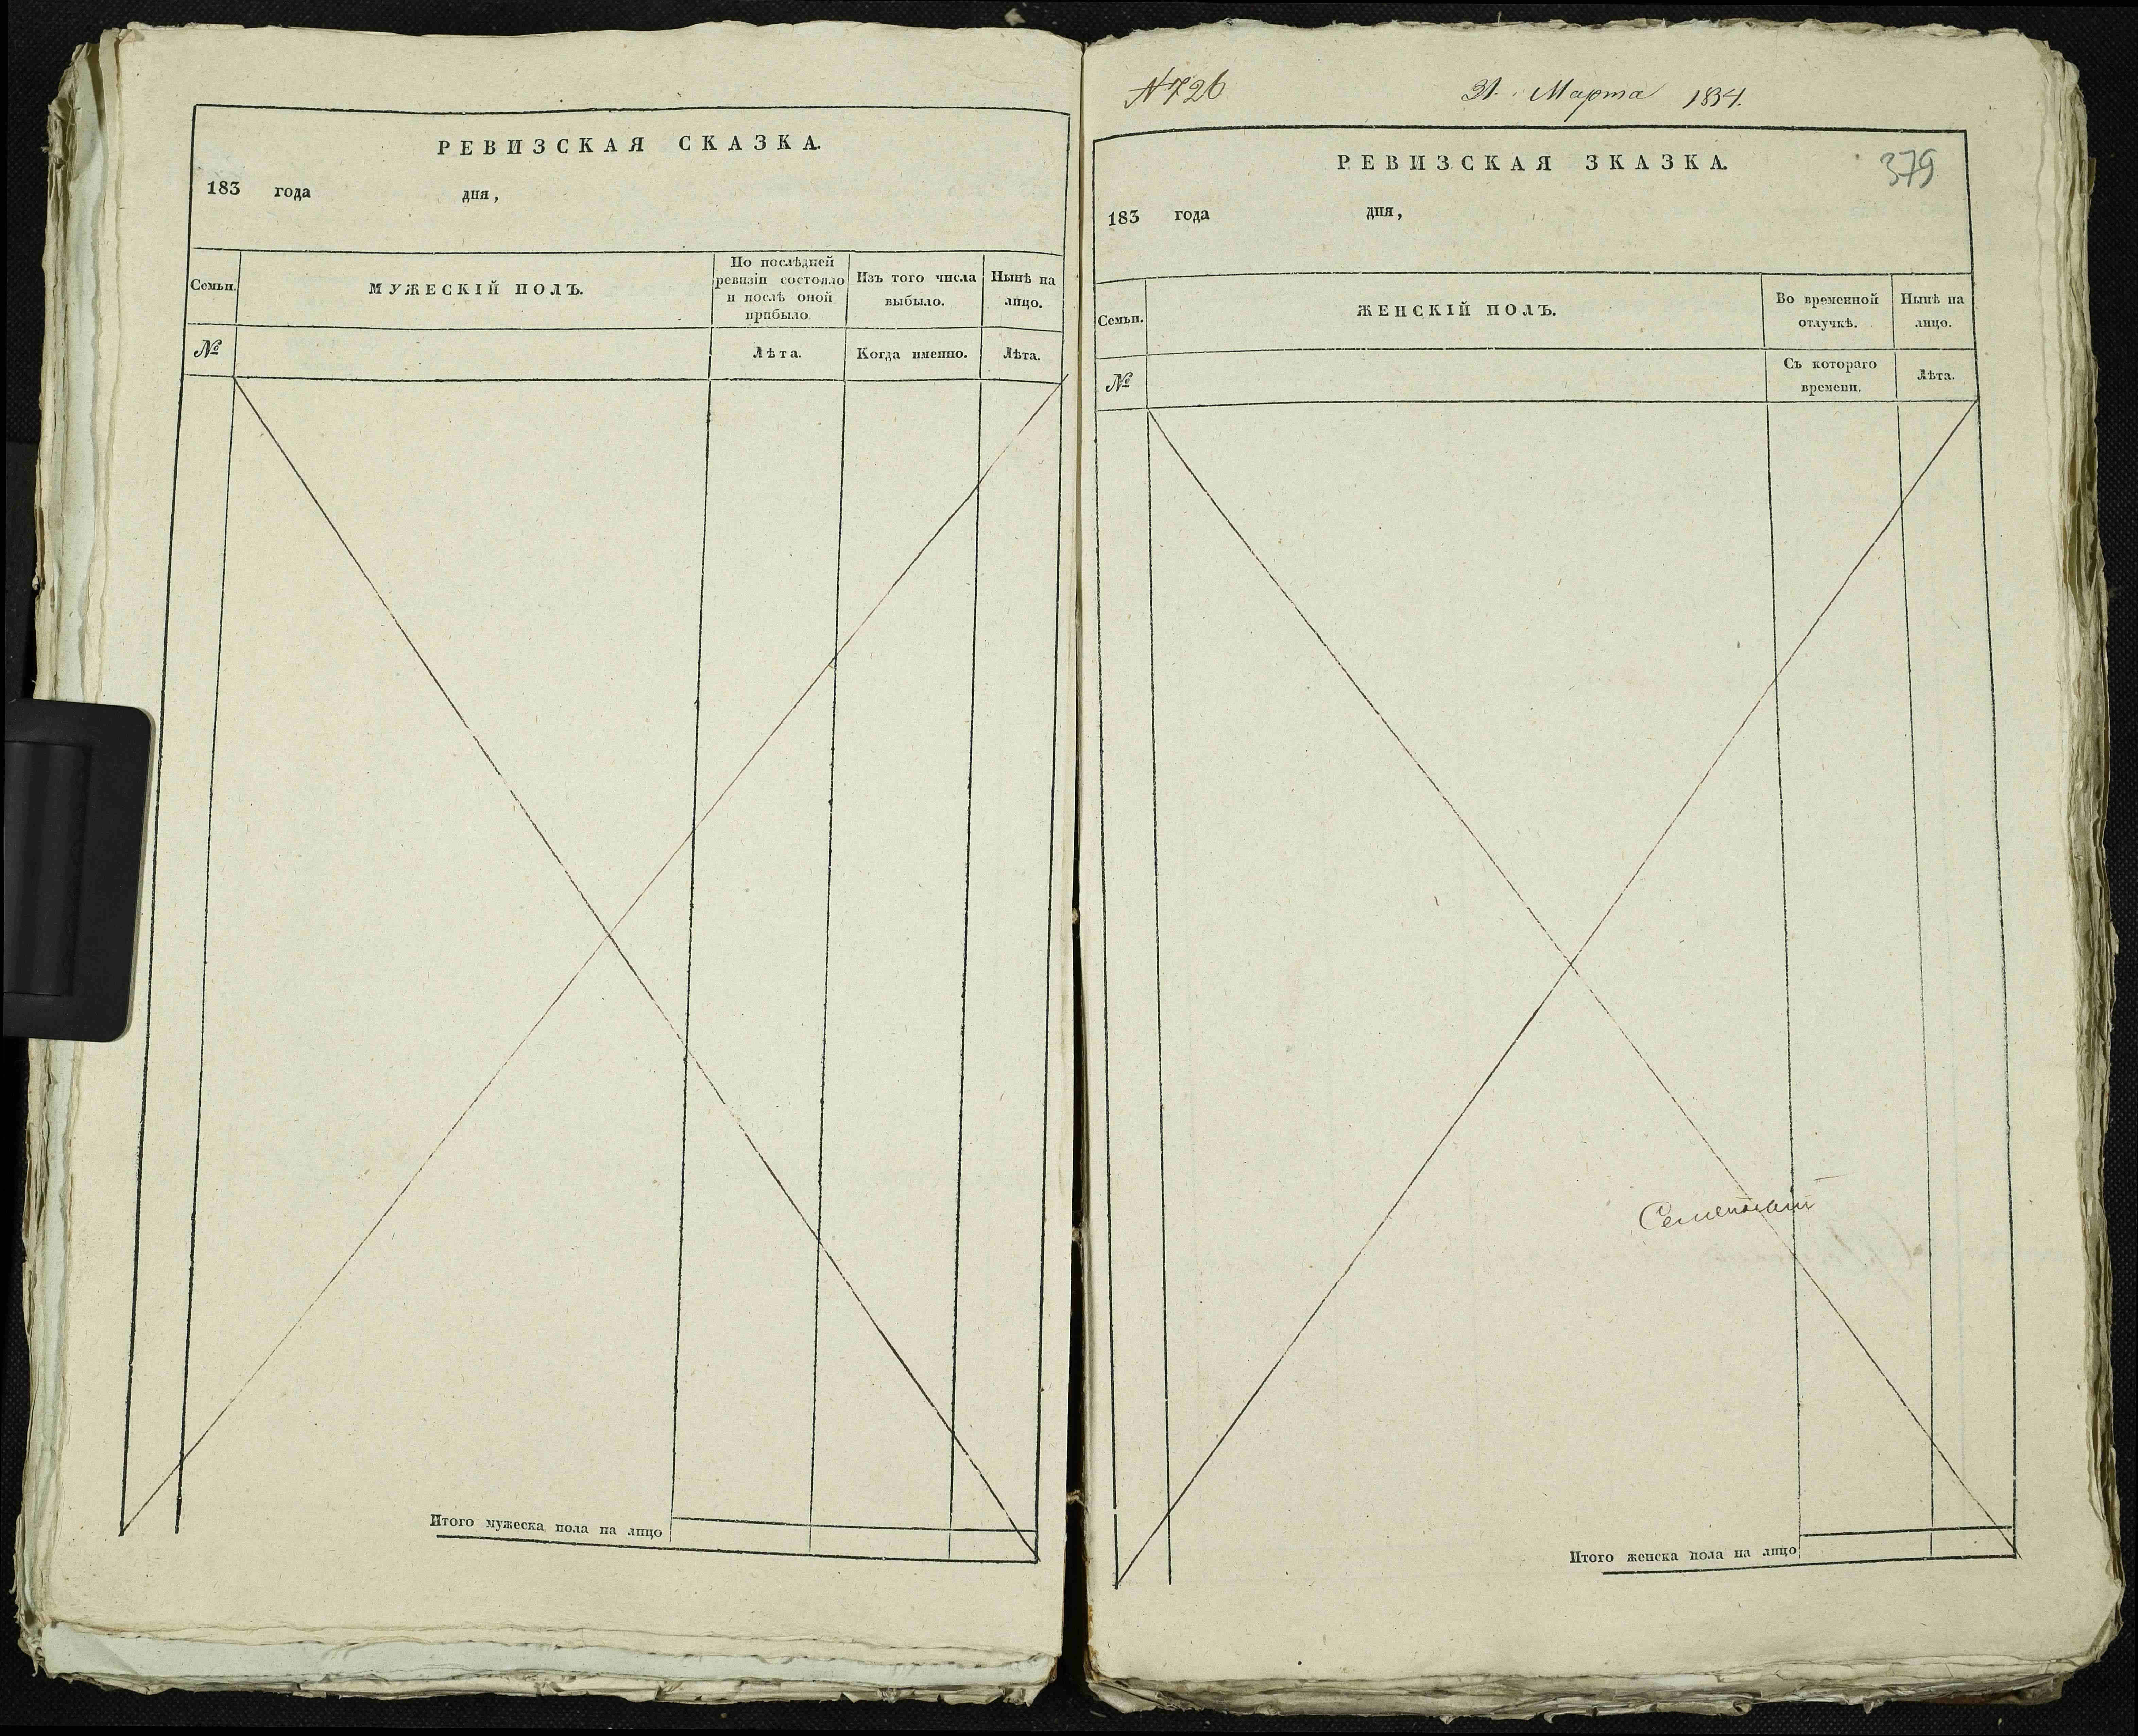 РЕВИЗСКАЯ СКАЗКА.
183 года дня,
Семьи.
МУЖЕСКІЙ ПОЛЪ.
По послѣдней
ревизіи состояло
и послѣ оной
прибыло.
Изъ того числа
выбыло.
Нынѣ на
лицо.
№
Лѣта.
Когда именно.
Лѣта.
Итого мужеска пола на лицо
N 726
31. Марта 1834.
РЕВИЗСКАЯ ЗКАЗКА.
379
183 года дня,
Семьи.
ЖЕНСКІЙ ПОЛЪ.
Во временной
отлучкѣ.
Нынѣ на
лицо.
№
Съ котораго
времени.
Лѣта.
Итого женска пола на лицо